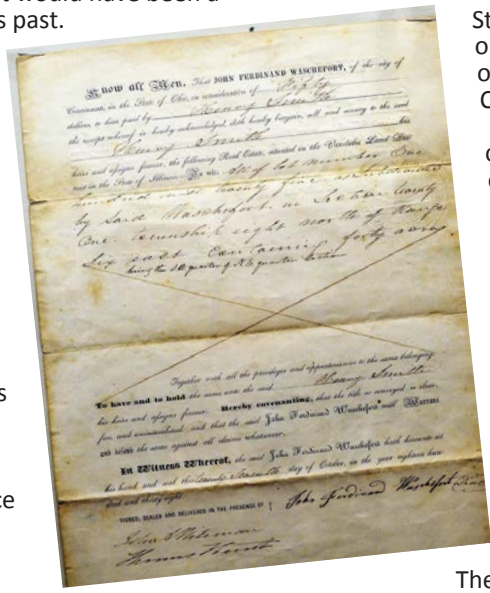 t would have been a
s past.
St
o
o
C
s
ce
The
Know all Men, That JOHN FERDINAND WASCHEFORT, of the city of
Cincinnati, in the State of Ohio, in consideration of Fifty
dollars, to him paid by Henry Smith
the receipt whereof is hereby acknowledged, doth hereby bargain, sell and convey to the said
Henry Smith his
heirs and assigns forever, the following Real Estate, situated in the Vandalia Land Dis-
trict in the State of Illinois all of lot number One
hundred and twenty five
by said Waschefort, in Section twenty
One. township eight north of Range
Six east Containing forty acres
being the quarter of quarter Section
Together with all the privileges and appurtenances to the same belonging
To have and to hold the same unto the said Henry Smith
his heirs and assigns forever. Hereby covenanting, that the title so conveyed is clear,
free, and unincumbered, and that the said John Ferdinand Waschefort will Warrant
and defend the same against all claims whatsoever.
In Witness Whereof, the said John Ferdinand Waschefort hath hereunto set
his hand and seal this twenty day of October, in the year eighteen hun-
dred and thirty eight
SIGNED, SEALED AND DELIVERED IN THE PRESENCE OF John Ferdinand Waschefort
John
Thomas